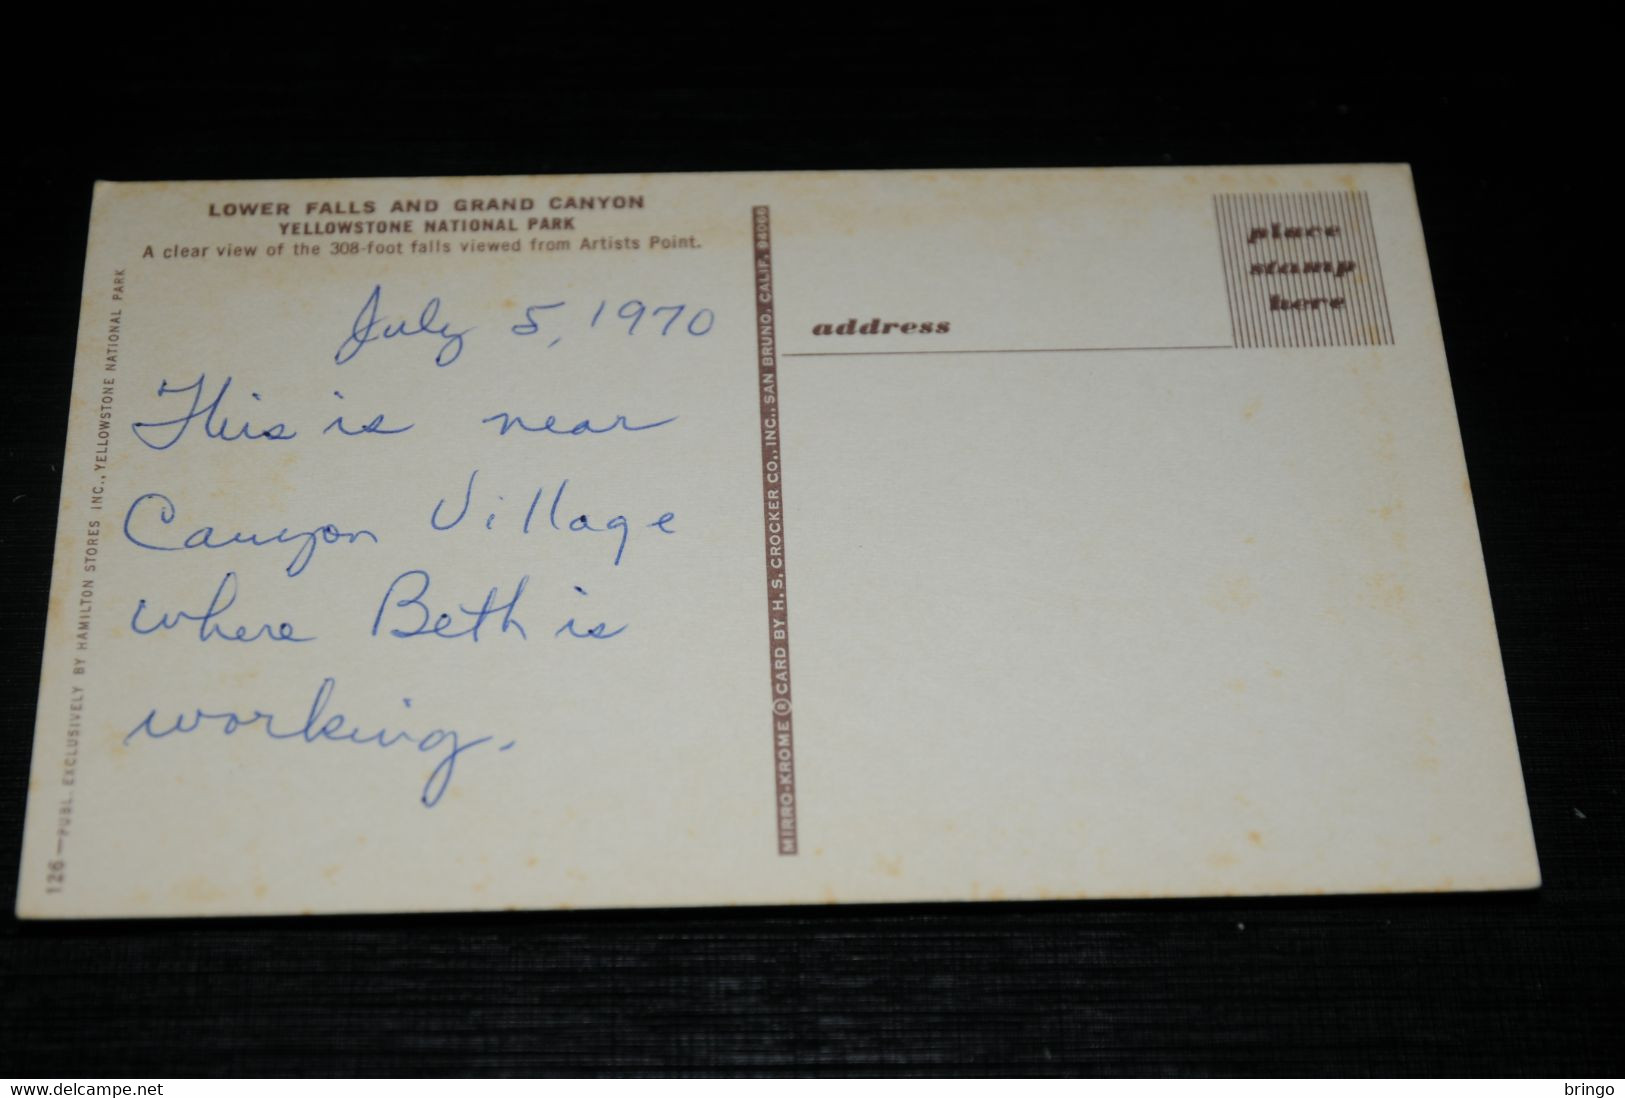 LOWER FALLS AND GRAND CANYON
YELLOWSTONE NATIONAL PARK
A clear view of the 308-foot falls viewed from Artists Point.
July 5, 1970
This is near
Canyon Village
where Beth is
working.
126—PUBL. EXCLUSIVELY BY HAMILTON STORES INC., YELLOWSTONE NATIONAL PARK
MIRRO-KROME ® CARD BY H. S. CROCKER CO., INC., SAN BRUNO, CALIF. 94066
address
place
stamp
here
www.delcampe.net
bringo